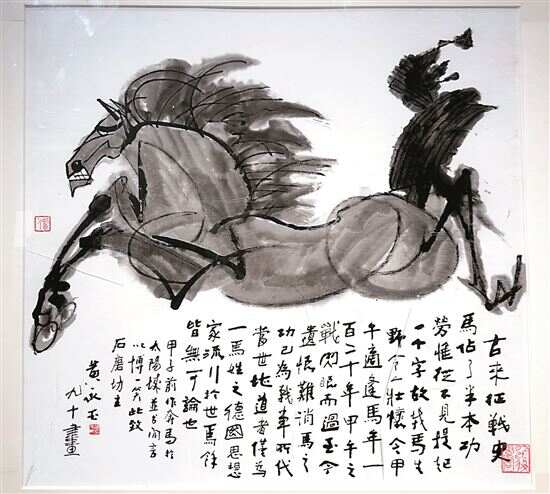 古來征戰史
馬佔了半本功
勞惟從不見提起
一个字故我馬生
野之壯懷今甲
午適逢馬年一
百二十年甲午之
戰閃眼而過至今
遺恨難消馬之
功已為戰車所代
當世地道者僅為
一馬姓之德國思想
家流行於世焉餘
皆無可論也
甲午前作奔馬於
太陽樣並書閑言
以博一笑此致
石磨坊主
黃永玉
九十畫